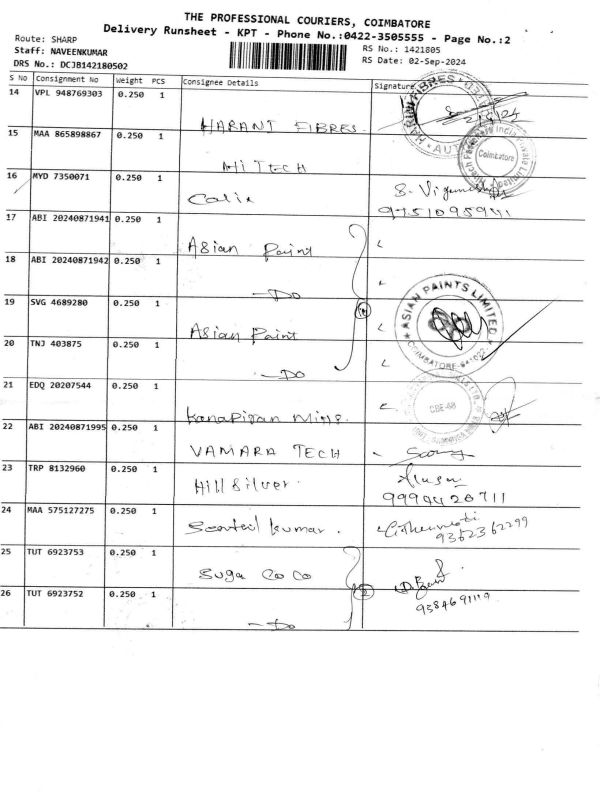 THE PROFESSIONAL COURIERS, COIMBATORE
Delivery Runsheet - KPT - Phone No.:0422-3505555 - Page No.:2
Route: SHARP
Staff: NAVEENKUMAR
DRS No.: DCJB142180502
RS No.: 1421805
RS Date: 02-Sep-2024
S No Consignment No Weight PCS Consignee Details Signature
14 VPL 948769303 0.250 1 HARANI FIBRES
15 MAA 865898867 0.250 1 HI TECH Coimbatore
16 MYD 7350071 0.250 1
17 ABI 20240871941 0.250 1 Asian Paint
18 ABI 20240871942 0.250 1 -Do
19 SVG 4689280 0.250 1 Asian Paint ASIAN PAINTS LIMITED
20 TNJ 403875 0.250 1 -Do
21 EDQ 20207544 0.250 1
22 ABI 20240871995 0.250 1 VAMARA TECH
23 TRP 8132960 0.250 1 Hill Silver 9994420711
24 MAA 575127275 0.250 1 kumar. 9362362299
25 TUT 6923753 0.250 1 Suga CoCo
26 TUT 6923752 0.250 1 -Do